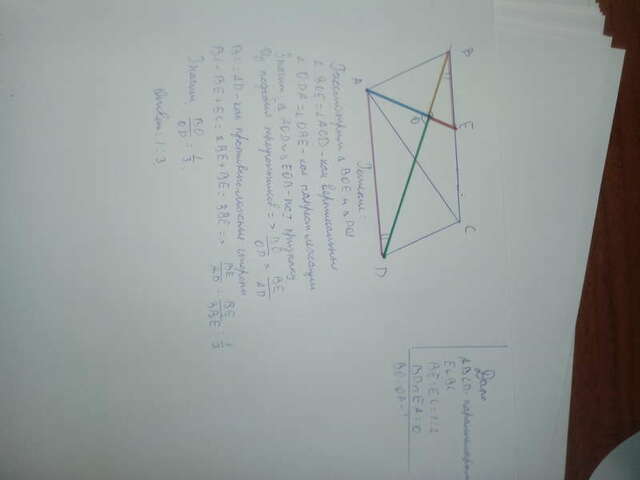 Дано
ABCD - параллелограм
E ∈ BC
BE : EC = 1 : 2
BD ∩ EA = O
BO : OD - ?
B
E
C
A
O
D
Решение:
Рассмотрим Δ BOE и Δ DOA
∠ BOE = ∠ AOD - как вертикальные
∠ ODA = ∠ OBE - как накрест лежащие
Значит Δ AOD ∼ Δ EOB - по 1 признаку
Из подобия треугольников => BO/OD = BE/AD
BC = AD - как противоположные стороны
BC = BE + EC = 2BE + BE = 3BE => BE/AD = BE/3BE = 1/3
Значит BO/OD = 1/3.
Ответ: 1 : 3